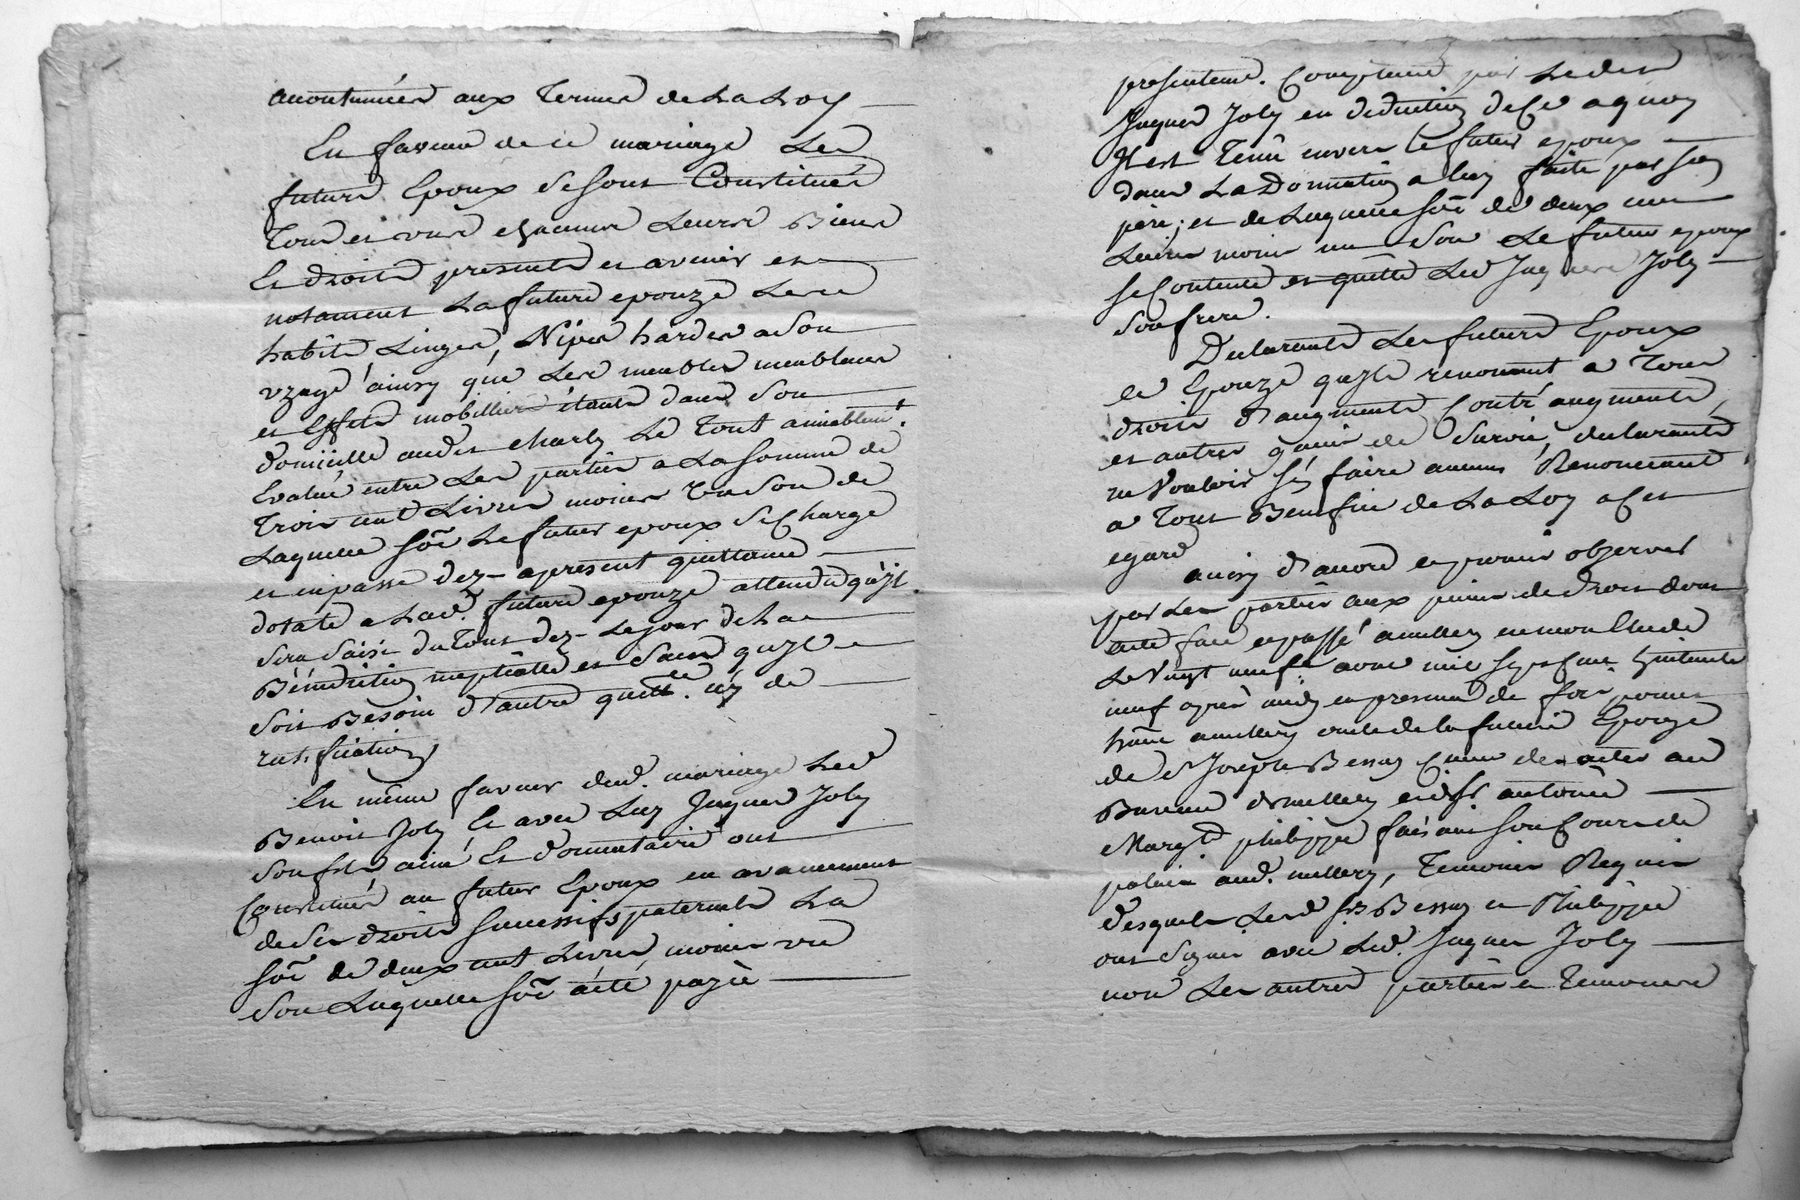 accoutumées aux Termes de La Loy
En faveur de ce mariage Les
futurs Epoux se sont Constitués
Tous et uns chacuns Leurs Biens
Et droits presents et avenir et
notament La future epouze Ses
habits Linges, Nipes hardes a son
uzage ainsy que Les meubles meublans
et Effets mobilliers étants dans son
domicille aud. Charly Le Tout amiablem.t
Evalué entre Les parties a La somme de
Trois cent Livres moins Un sou de
Laquelle so.e Le futur epoux se Charge
et en passe dez apresent quittance
dotale a Lad. future epouze attendu qu'il
sera saisi du Tout dez Le jour de La
Bénédiction nuptialle et sans qu'il
soit Besoin d'autre quitt.ce ny de
ratification
En même faveur dud. mariage Led.
Benoit Joly Et avec Luy Jaques Joly
son fils ainé Et donnataire ont
Constitué au futur Epoux en avancement
de ses droits successifs paternels La
so.e de deux cent Livres moins un
sou Laquelle so.e a été payée
presentem. Comptant par Led.
Jaques Joly en deduction de Ce a quoy
Il est Tenû envers Le futur epoux
dans La Donnation a luy faite par son
père; et de Laquelle so.e de deux cent
Livres moins un sou Le futur epoux
se Contente et quitte Led. Jaques Joly
son frere.
Declarants Les futurs Epoux
et Epouze qu'ils renoncent a Tous
droits d'augments Contr'augments
et autres gains de Survie, declarants
ne Vouloir s'en faire aucuns Renonceant
a Tout Benefice de La Loy a Cet
egard
ainsy d'accord et promis observer
par Les parties aux peines de droit dont
acte fait et passé a millery en mon Etude
Le Vingt neuf avril mil sept cent huitante
neuf après midy en presence de
a millery oncle de la future Epouze
de s.r Joseph Bessoy Commis des actes au
Bureau de millery et de s.r antoine
Marg.te philippe faisant son Cours de
palais aud. millery, Temoins Requis
desquels Lesd. s.rs Bessoy et Philippe
ont signé avec Led. Jaques Joly
non Les autres parties et Temoins